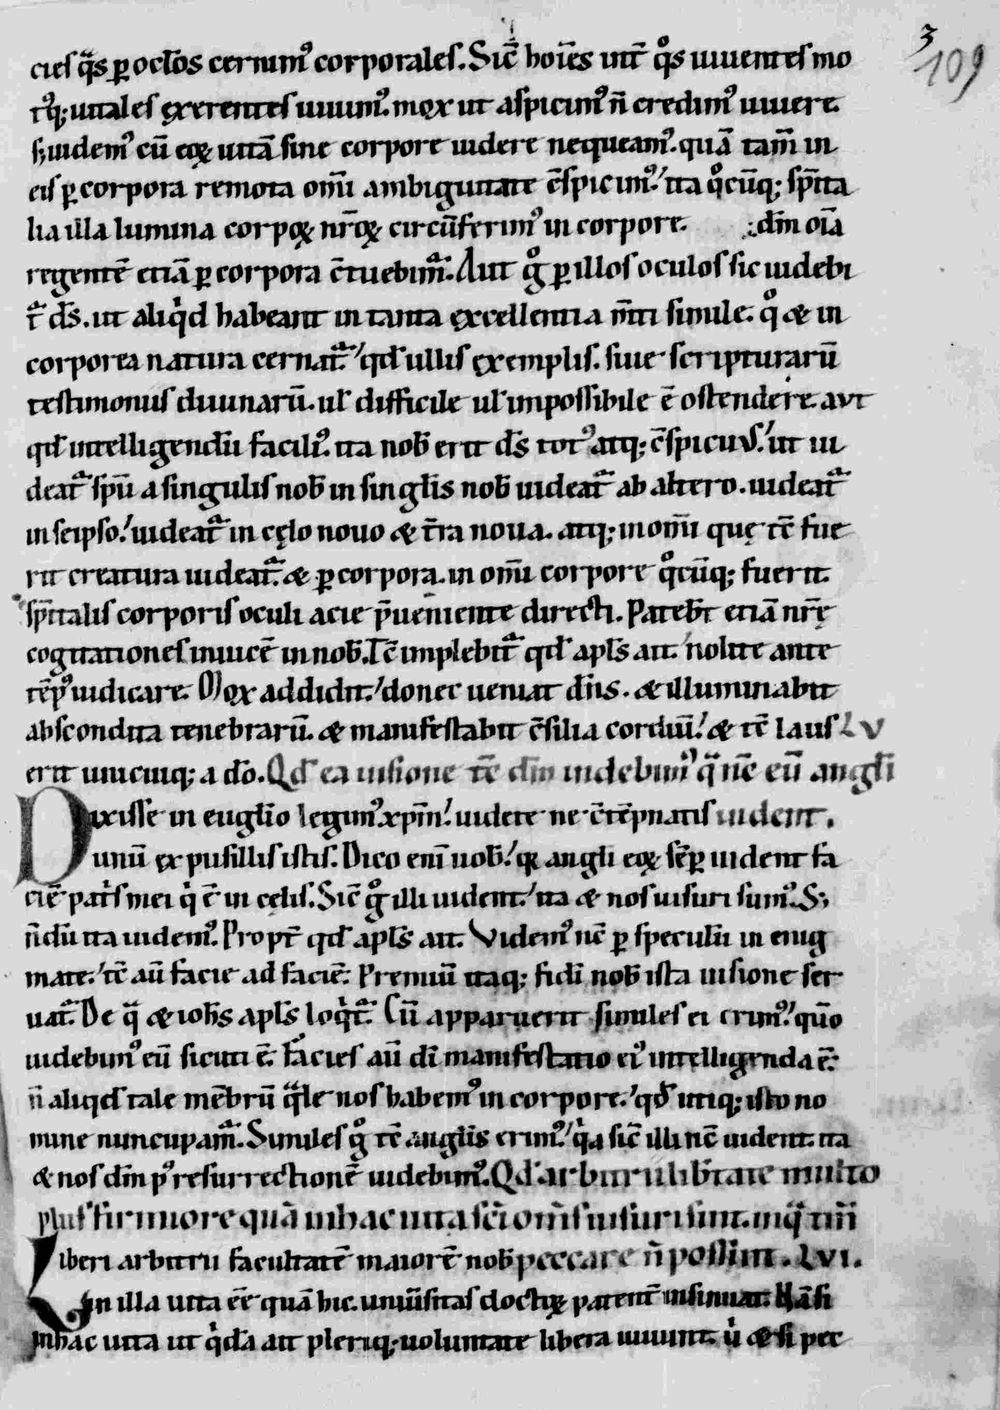 3
109
cies q̃s ꝑ octo̅s cernim᷒ corporales. Sic̅ ho̅i̅es int̅ qͦs uiuentes mo
t᷒q; uitales exerentes uiuim᷒. mox ut aspicim᷒ n̅ credim᷒ uiuere.
s; uidem᷒ cu̅ eoꝝ uita̅ sine corpore uidere nequeam᷒. qua̅ tam̅ in
eis ꝑ corpora remota om̅i ambiguitate c̅spicim᷒. ita qͦcu̅q; sp̅ita
lia illa lumina corpoꝝ nr̅oꝝ circu̅ferim᷒ in corpore. d̅m o̅ia
regente̅ etia̅ ꝑ corpora c̅tuebim̅. Aut gͦ ꝑ illos oculos sic uidebi
t̅ d̅s. ut aliqͥd habeant in tanta excellentia m̅ti simile. qͦ & in
corporea natura cernat᷑. qđ ullis exemplis. siue scripturaru̅
testimoniis diuinaru̅. ul̅ difficile ul̅ impossibile e̅ ostendere. aut
qđ intelligendu̅ facili᷒. ita nob̅ erit d̅s not᷒ atq; c̅spicuus. ut ui
deat᷑ sp̅u a singulis nob̅ in singl̅is nob̅ uideat᷑ ab altero. uideat᷑
in seipso. uideat᷑ in cęlo nouo & t̅ra noua. atq; in om̅i quę tc̅ fue
rit creatura uideat᷑. & ꝑ corpora. in om̅i corpore qͦcu̅q; fuerit
sp̅italis corporis oculi acie p̅ueniente directi. Pateb̅t etia̅ nr̅ę
cogitationes inuice̅ in nob̅. Tc̅ implebit᷑ qđ apl̅s ait. nolite ante
te̅p᷒ iudicare. Mox addidit. donec ueniat dn̅s. & illuminabit
abscondita tenebraru̅. & manifestabit c̅silia cordiu̅. & tc̅ laus LV
erit unicuiq; a d̅o. Qđ ea uisione tc̅ d̅m uidebim᷒ qͣ nc̅ eu̅ angl̅i
Dixisse in eugl̅io legim᷒ xp̅m. uidete ne c̅te̅pnatis uident.
unu̅ ex pusillis istis. Dico eni̅ uob̅. qa angl̅i eoꝝ se̅ꝑ uident fa
cie̅ pat̅s mei qͥ e̅ in cęlis. Sic̅ gͦ illi uident. ita & nos uisuri sum᷒. S;
n̅du̅ ita uidem᷒. Propt̅ qđ apl̅s ait. Videm᷒ nc̅ ꝑ speculu̅ in enig
mate. tc̅ au̅ facie ad facie̅. Premiu̅ itaq; fidi̅ nob̅ ista uisione ser
uat᷑. De qͣ & ioh̅s apl̅s loqͥt᷑. Cu̅ apparuerit similes ei erim᷒. quo̅
uidebim᷒ eu̅ sicuti e̅. Facies au̅ d̅i manifestatio ei᷒ intelligenda e̅.
n̅ aliqđ tale me̅bru̅ qͣle nos habem᷒ in corpore. qđ utiq; isto no
mine nuncupam᷒. Similes gͦ tc̅ anglis erim᷒. qͥa sic̅ illi nc̅ uident. ita
& nos d̅m p᷒ resurrectione̅ uidebim᷒. Qđ arbitrii lib̅tate multo
plus firmiore qua̅ in hac uita sc̅i om̅s uisuri sint. in qͣ tm̅
Liberi arbitrii facultate̅ maiore̅ nob̅ peccare n̅ possint. LVI.
in illa uita e̅e qua̅ hic. uniu̅sitas doctoꝝ patent̅ insinuat. Na̅ si
in hac uita ut qͥda̅ ait pleriq; uoluntate libera uiuunt. u̅ & si pec